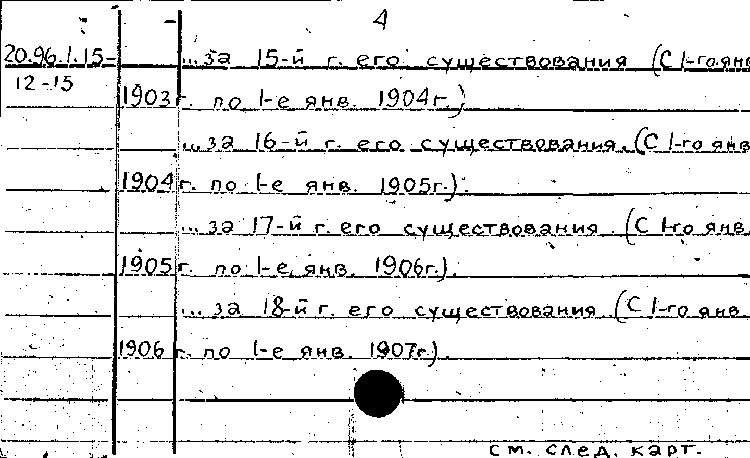 4
20.96.1.15- ...за 15-й г. его существования (С 1-го янв
12-15
1903 г. по 1-е янв. 1904г.)
...за 16-й г. его существования. (С 1-го янв
1904 г. по 1-е янв. 1905г.).
...за 17-й г. его существования. (С 1-го янв.
1905 г. по 1-е янв. 1906г.).
...за 18-й г. его существования. (С 1-го янв.
1906 г. по 1-е янв. 1907г.).
см. след. карт.